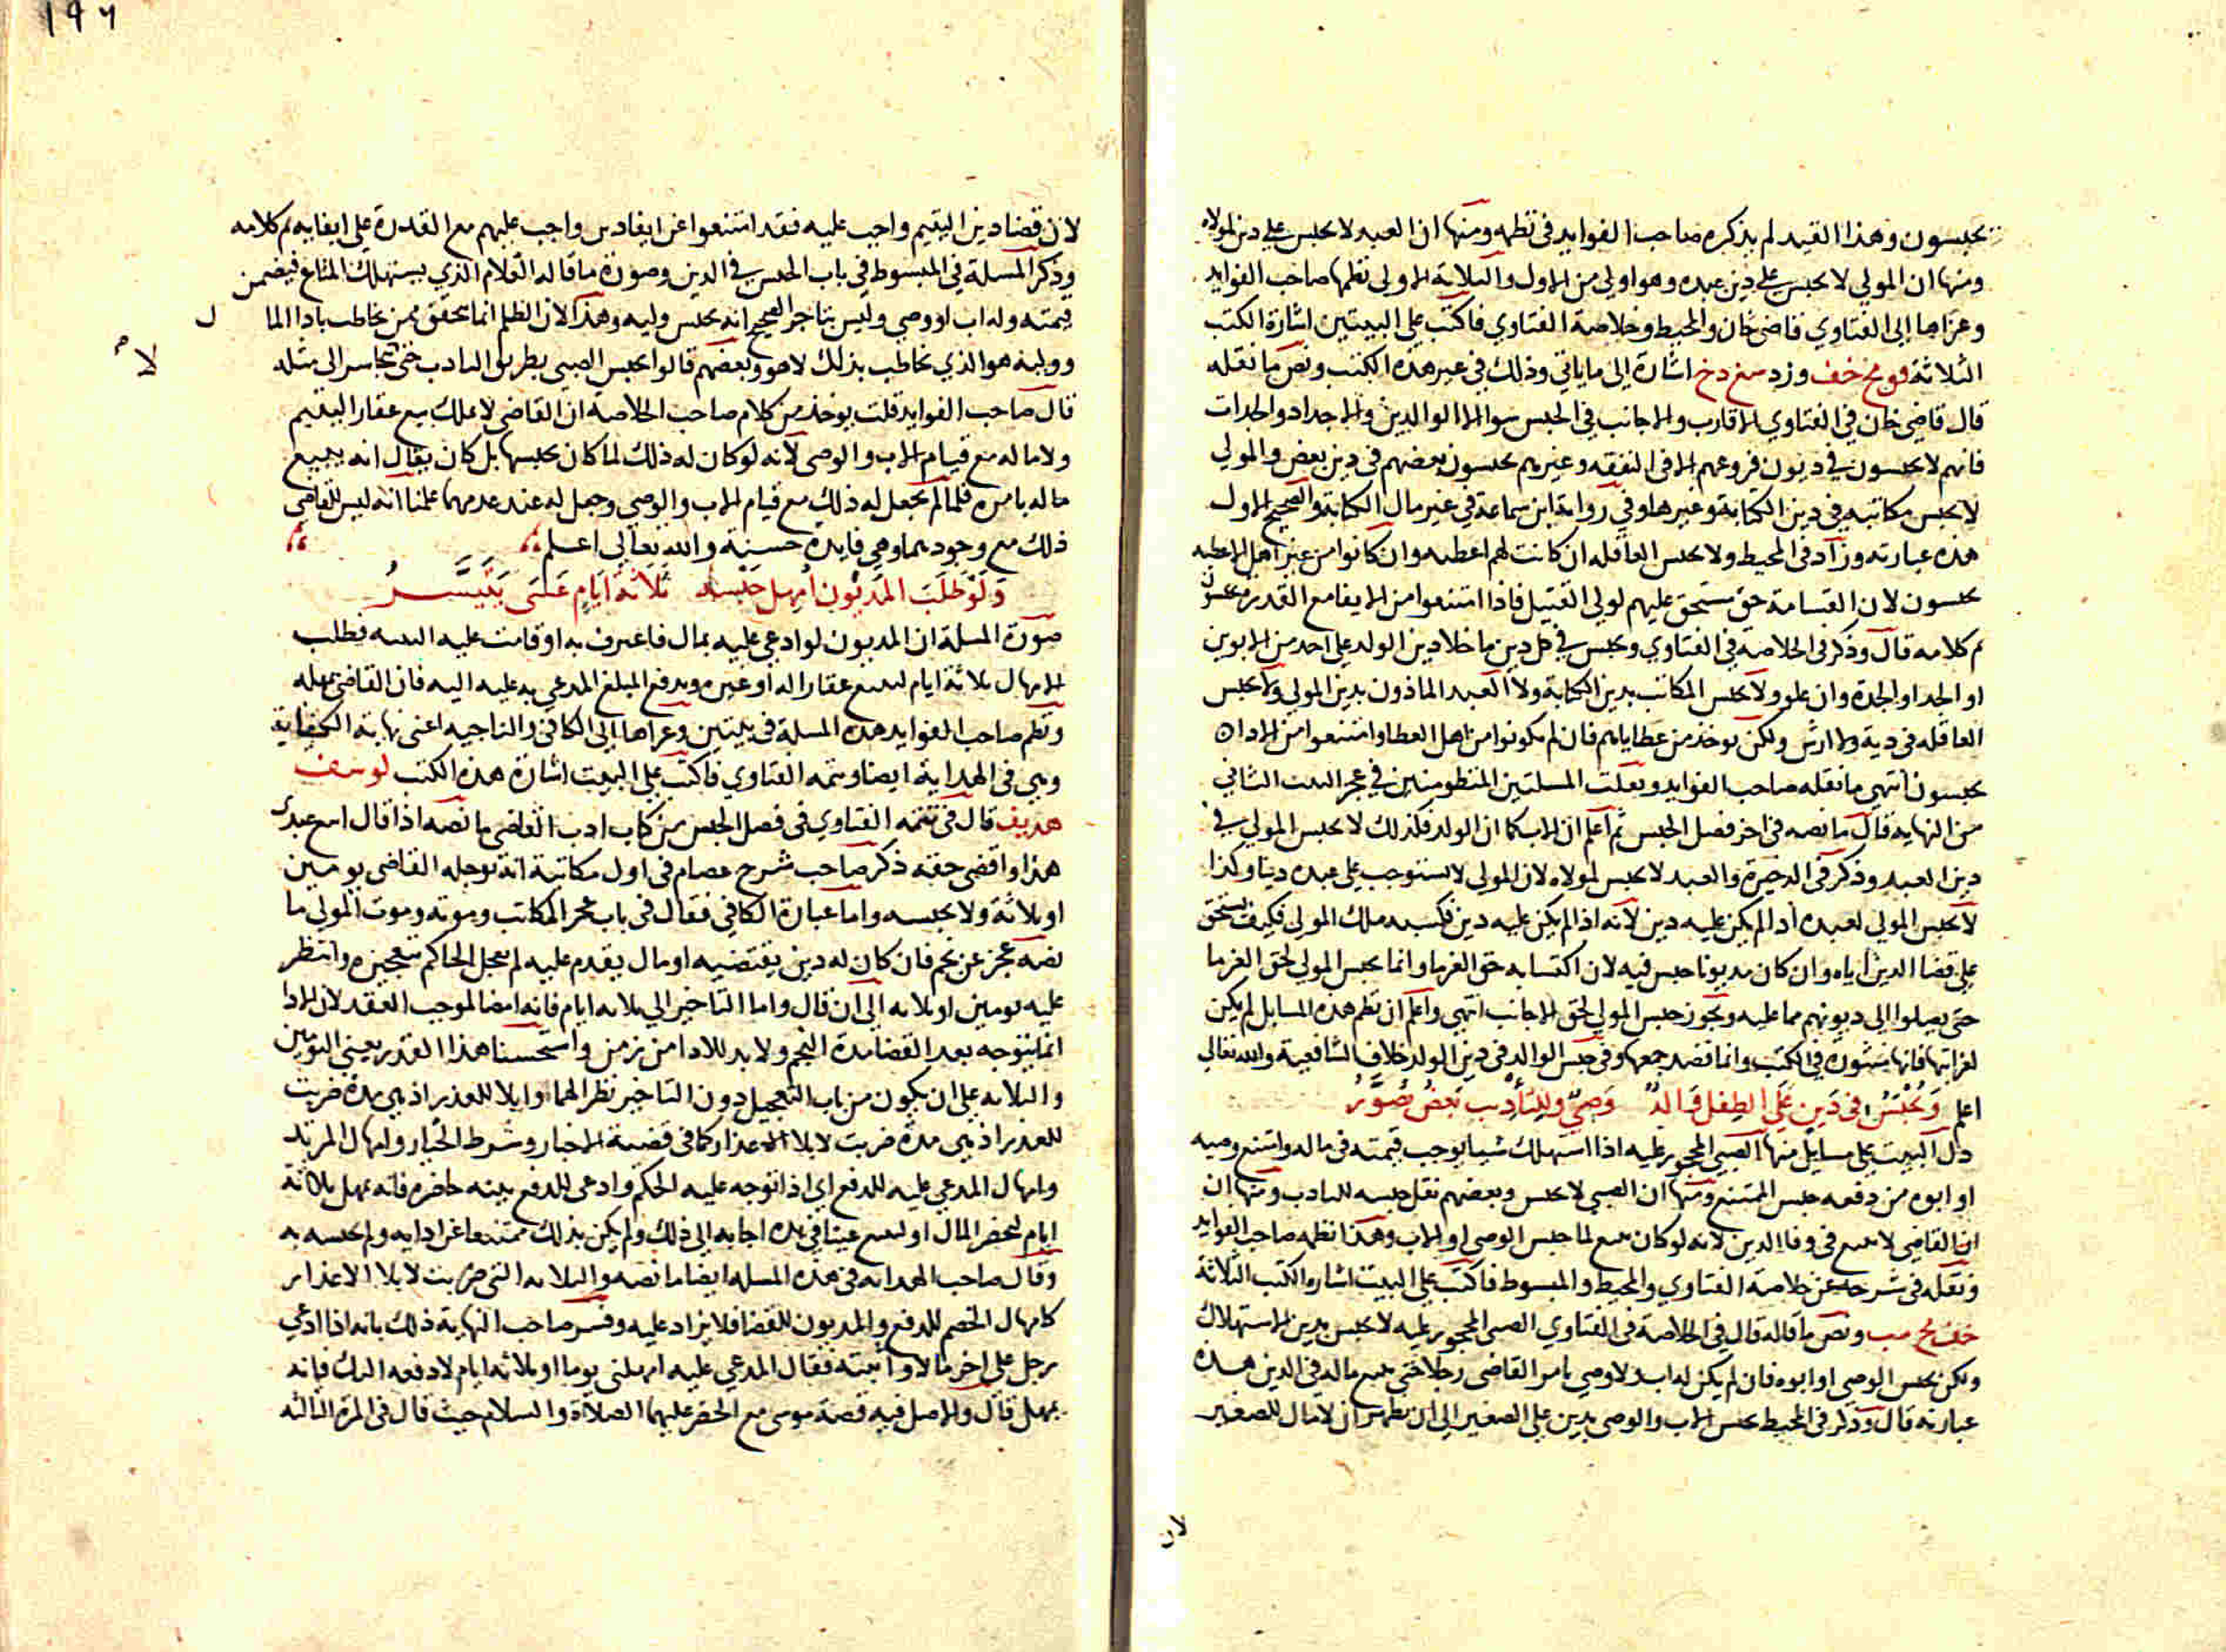 يحبسون وهذا القيد لم يذكره صاحب الفوايد في نظمه ومنها ان العبد لا يحبس على دين لمولاه
ومنها ان المولي لا يحبس على دين عبده وهو اولي من الاول والثلاثة الاولي نظمها صاحب الفوايد
وعزاها الي الفتاوي قاضي خان والمحيط وخلاصة الفتاوي فاكتب علي البيتين اشارة الكتب
الثلاثة قو مح خف وزد سغ دخ اشارة الي ما ياتي وذلك في غير هذه الكتب ونص ما نقله
قال قاضي خان في الفتاوي الاقارب والاجانب في الحبس سوا الا الوالدين والاجداد والجدات
فانهم لا يحبسون في ديون فروعهم الا في النفقه وغيرهم يحبسون بعضهم في دين بعض والمولي
لا يحبس مكاتبه في دين الكتابة وغيرها وفي رواية ابن سماعة في غير مال الكتابة والصحيح الاول
هذه عبارته وزاد في المحيط ولا يحبس العاقله ان كانت لهم اعطيه وان كانوا من غير اهل الاعطيه
يحبسون لان القسامة حق مستحق عليهم لولي القتيل فاذا امتنعوا من الايفا مع القدره يحبسون
تم كلامه قال وذكر في الخلاصة في الفتاوي ويحبس في كل دين ما خلا دين الولد علي احد من الابوين
او الجد او الجدة وان علوو ولا يحبس المكاتب بدين الكتابة ولا العبد الماذون بدين المولي ولا يحبس
العاقله في دية ولا ارش ولكن يوخذ من عطاياهم فان لم يكونوا من اهل العطا وامتنعوا من الادا
يحبسون انتهي ما نقله صاحب الفوايد ونقلت المسلتين المنظومتين في عجز البيت الثاني
من النهايه قال ما نصه في اخر فصل الحبس ثم اعلم ان الاب كما ان الولد فكذلك لا يحبس المولي في
دين العبد وذكر في الذخيرة والعبد لا يحبس لمولاه لان المولي لا يستوجب علي عبده دينا وكذا
لا يحبس المولي لعبده اذا لم يكن عليه دين لانه اذا لم يكن عليه دين فكسبه ملك المولي فكيف يستحق
علي قضا الدين اياه وان كان مديونا حبس فيه لان اكتسابه حق الغرما وانما يحبس المولي لحق الغرما
حتي يصلوا الي ديونهم مما عليه ويجوز حبس المولي لحق الاجانب انتهي واعلم ان نظم هذه المسايل لم يكن
لغرابتها فانها منثورة في الكتب وانما قصد جمعها وفي حبس الوالد في دين الولد خلاف الشافعية والله تعالي
اعلم وَيُحْبَسُ في دَينٍ عَلَى الطِفلِ وَالدٌ وَصِيٌّ وَلِلتَأدِيبِ بَعضٌ يُصَوِّرُ
دل البيت علي مسايل منها الصبي المحجور عليه اذا استهلك شيا يوجب قيمته في ماله وامتنع وصيه
او ابوه من دفعه حبس الممتنع ومنها ان الصبي لا يحبس وبعضهم نقل حبسه للتاديب ومنها ان
ان القاضي لا يبيع في وفا الدين لانه لو كان يبيع لما حبس الوصي او الاب وهذا نظمه صاحب الفوايد
ونقله في شرحه عن خلاصة الفتاوي والمحيط والمبسوط فاكتب علي البيت اشارة الكتب الثلاثة
خف مح مب ونص ما قاله قال في الخلاصة في الفتاوي الصبي المحجور عليه لا يحبس بدين الاستهلاك
ولكن يحبس الوصي او ابوه فان لم يكن له اب ولا وصي يامر القاضي رجلا حتي يبيع ماله في الدين هذه
عبارته قال وذكر في المحيط يحبس الاب والوصي بدين علي الصغير الي ان يظهر ان لا مال للصغير
لان
١٩٦
لان قضا دين اليتيم واجب عليه فقد امتنعوا عن ايفا دين واجب عليهم مع القدرة علي ايفايه تم كلامه
وذكر المسلة في المبسوط في باب الحبس في الدين وصورة ما قاله الغلام الذي يستهلك المتاع فيضمن
قيمته وله اب او وصي وليس بتاجر الصحيح انه يحبس وليه وهذا لان الظلم انما يتحقق ممن يخاطب باداا لما ل
ووليه هو الذي يخاطب بذلك لا هو وبعضهم قالوا يحبس الصبي بطريق التاديب حتي لا يتجاسر الي مثله
قال صاحب الفوايد قلت يوخذ من كلام صاحب الخلاصة ان القاضي لا يملك بيع عقار اليتيم
ولا ماله مع قيام الاب والوصي لانه لو كان له ذلك لما كان يحبسها بل كان يقال انه يبيع
ماله بامره فلما لم يجعل له ذلك مع قيام الاب والوصي وجعل له عند عدمهما علمنا انه ليس للقاضي
ذلك مع وجودهما وهي فايدة حسنة والله تعالي اعلم
وَلَوْ طَلَبَ المَديُونُ امهلِ حَبْسِهِ ثَلاثَةَ اَيَامٍ عَسَى يَتَيَسَّرُ
صورة المسلة ان المديون لو ادعي عليه بمال فاعترف به او قامت عليه البينه فطلب
الامهال ثلاثة ايام ليبيع عقارا له او غيره ويدفع المبلغ المدعي به عليه اليه فان القاضي يمهله
ونظم صاحب الفوايد هذه المسلة في بيتين وعزاها الي الكافي والتاجيه اعني نهاية الكفاية
وهي في الهداية ايضا وتتمه الفتاوي فاكتب علي البيت اشارة هذه الكتب
قال في تتمه الفتاوي في فصل الحبس من كتاب ادب القاضي ما نصه اذا قال ابيع عبدي
هذا واقضي حقه ذكر صاحب شرح عصام في اول مكاتبة انه يوجله القاضي يومين
او ثلاثة ولا يحبسه واما عبارة الكافي فقال في باب عجز المكاتب وموته وموت المولي ما
نصه عجز عن نجم فان كان له دين يقتضيه او مال يقدم عليه لم يعجل الحاكم بتعجيزه وانتظر
عليه يومين او ثلاثه الي ان قال واما التاخير الي ثلاثه ايام فانه امضا لموجب العقد لان الادا
انما يتوجه بعد انقضا مدة النجم ولا بد للادا من زمن واستحسنا هذا القدر يعني اليومين
والثلاثه علي ان يكون من باب التعجيل دون التاخير نظرا لهما وابلا للعذر اذ هي مدة ضربت
للعذر اذ هي مدة ضربت لابلا الاعذار كما في قضية الاخبار وشرط الخيار وامهال المرتد
وامهال المدعي عليه للدفع اي اذا توجه عليه الحكم وادعي للدفع بينه حاضره فانه يمهل ثلاثة
ايام ليحضر المال او ليبيع عينا في يده اجابه الي ذلك ولم يكن بذلك ممتنعا عن ادايه ولم يحبسه به
وقال صاحب الهدايه في هذه المسله ايضا ما نصه والثلاثه التي ضربت لابلا الاعذار
كامهال الخصم للدفع والمديون للقضا فلا يزاد عليه وفسر صاحب النهاية ذلك بانه اذا ادعي
رجل علي اخر مالا واثبته فقال المدعي عليه امهلني يوما او ثلاثه ايام لادفعه اليك فانه
يمهل قال والاصل فيه قصة موسي مع الخضر عليهما الصلاة والسلام حيث قال في المرة الثالثه